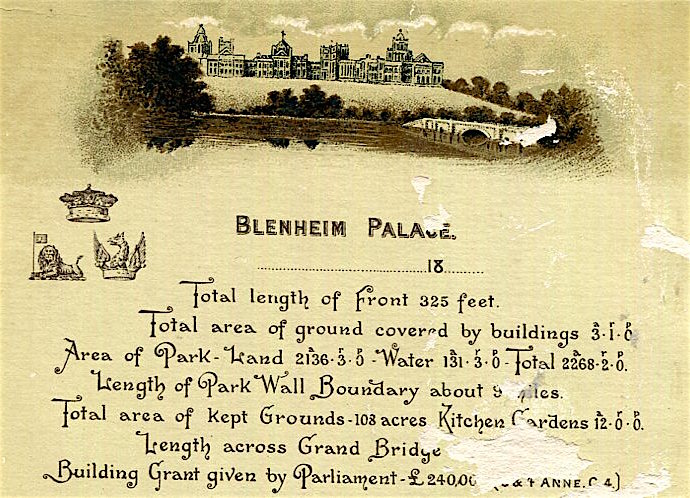 BLENHEIM PALACE.
18
Total length of Front 325 feet.
Total area of ground covered by buildings 3·1·0
Area of Park - Land 2136·3·0 - Water 131·3·0 - Total 2268·2·0.
Length of Park Wall Boundary about 9 miles.
Total area of kept Grounds - 103 acres Kitchen Gardens 12·0·0.
Length across Grand Bridge
Building Grant given by Parliament - £240,00 ANNE. C 4)